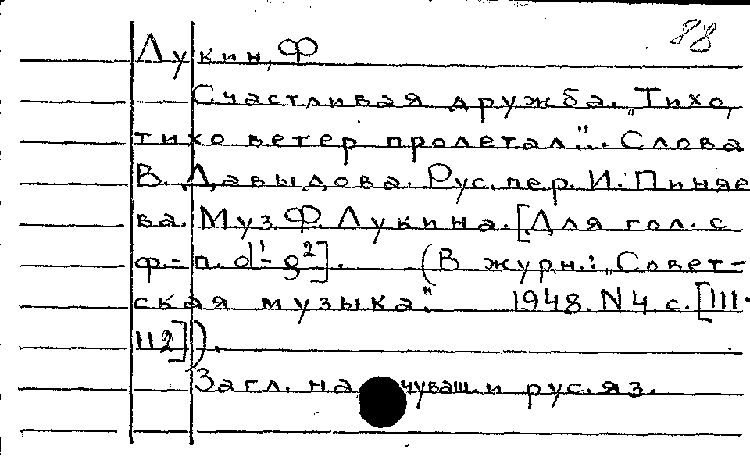 88
Лукин, Ф
Счастливая дружба. „Тихо,
тихо ветер пролетал"... Слова
В. Давыдова. Рус. пер. И. Пиняе-
ва. Муз. Ф. Лукина. [Для гол. с
ф.-п. d¹-g²]. (В журн.: „Совет-
ская музыка". 1948. N4 с. [111-
112]).
Загл. на чуваш. и рус. яз.